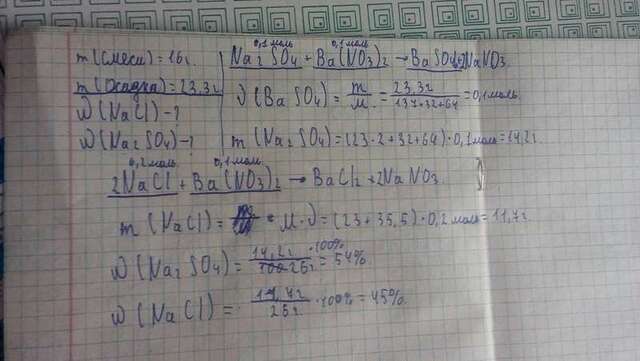 m(смеси)=16г.
m(осадка)=23,3г
ω(NaCl)-?
ω(Na2SO4)-?
0,1моль 0,1моль
Na2SO4+Ba(NO3)2→BaSO4+2NaNO3
ν(BaSO4)=m/M=23,3г/137+32+64=0,1моль.
m(Na2SO4)=(23·2+32+64)·0,1моль=14,2г.
0,2моль 0,1моль
2NaCl+Ba(NO3)2→BaCl2+2NaNO3
m(NaCl)= M·ν=(23+35,5)·0,2моль=11,7г.
ω(Na2SO4)=14,2г·100%/26г=54%
ω(NaCl)=11,7г/26г·100%=45%